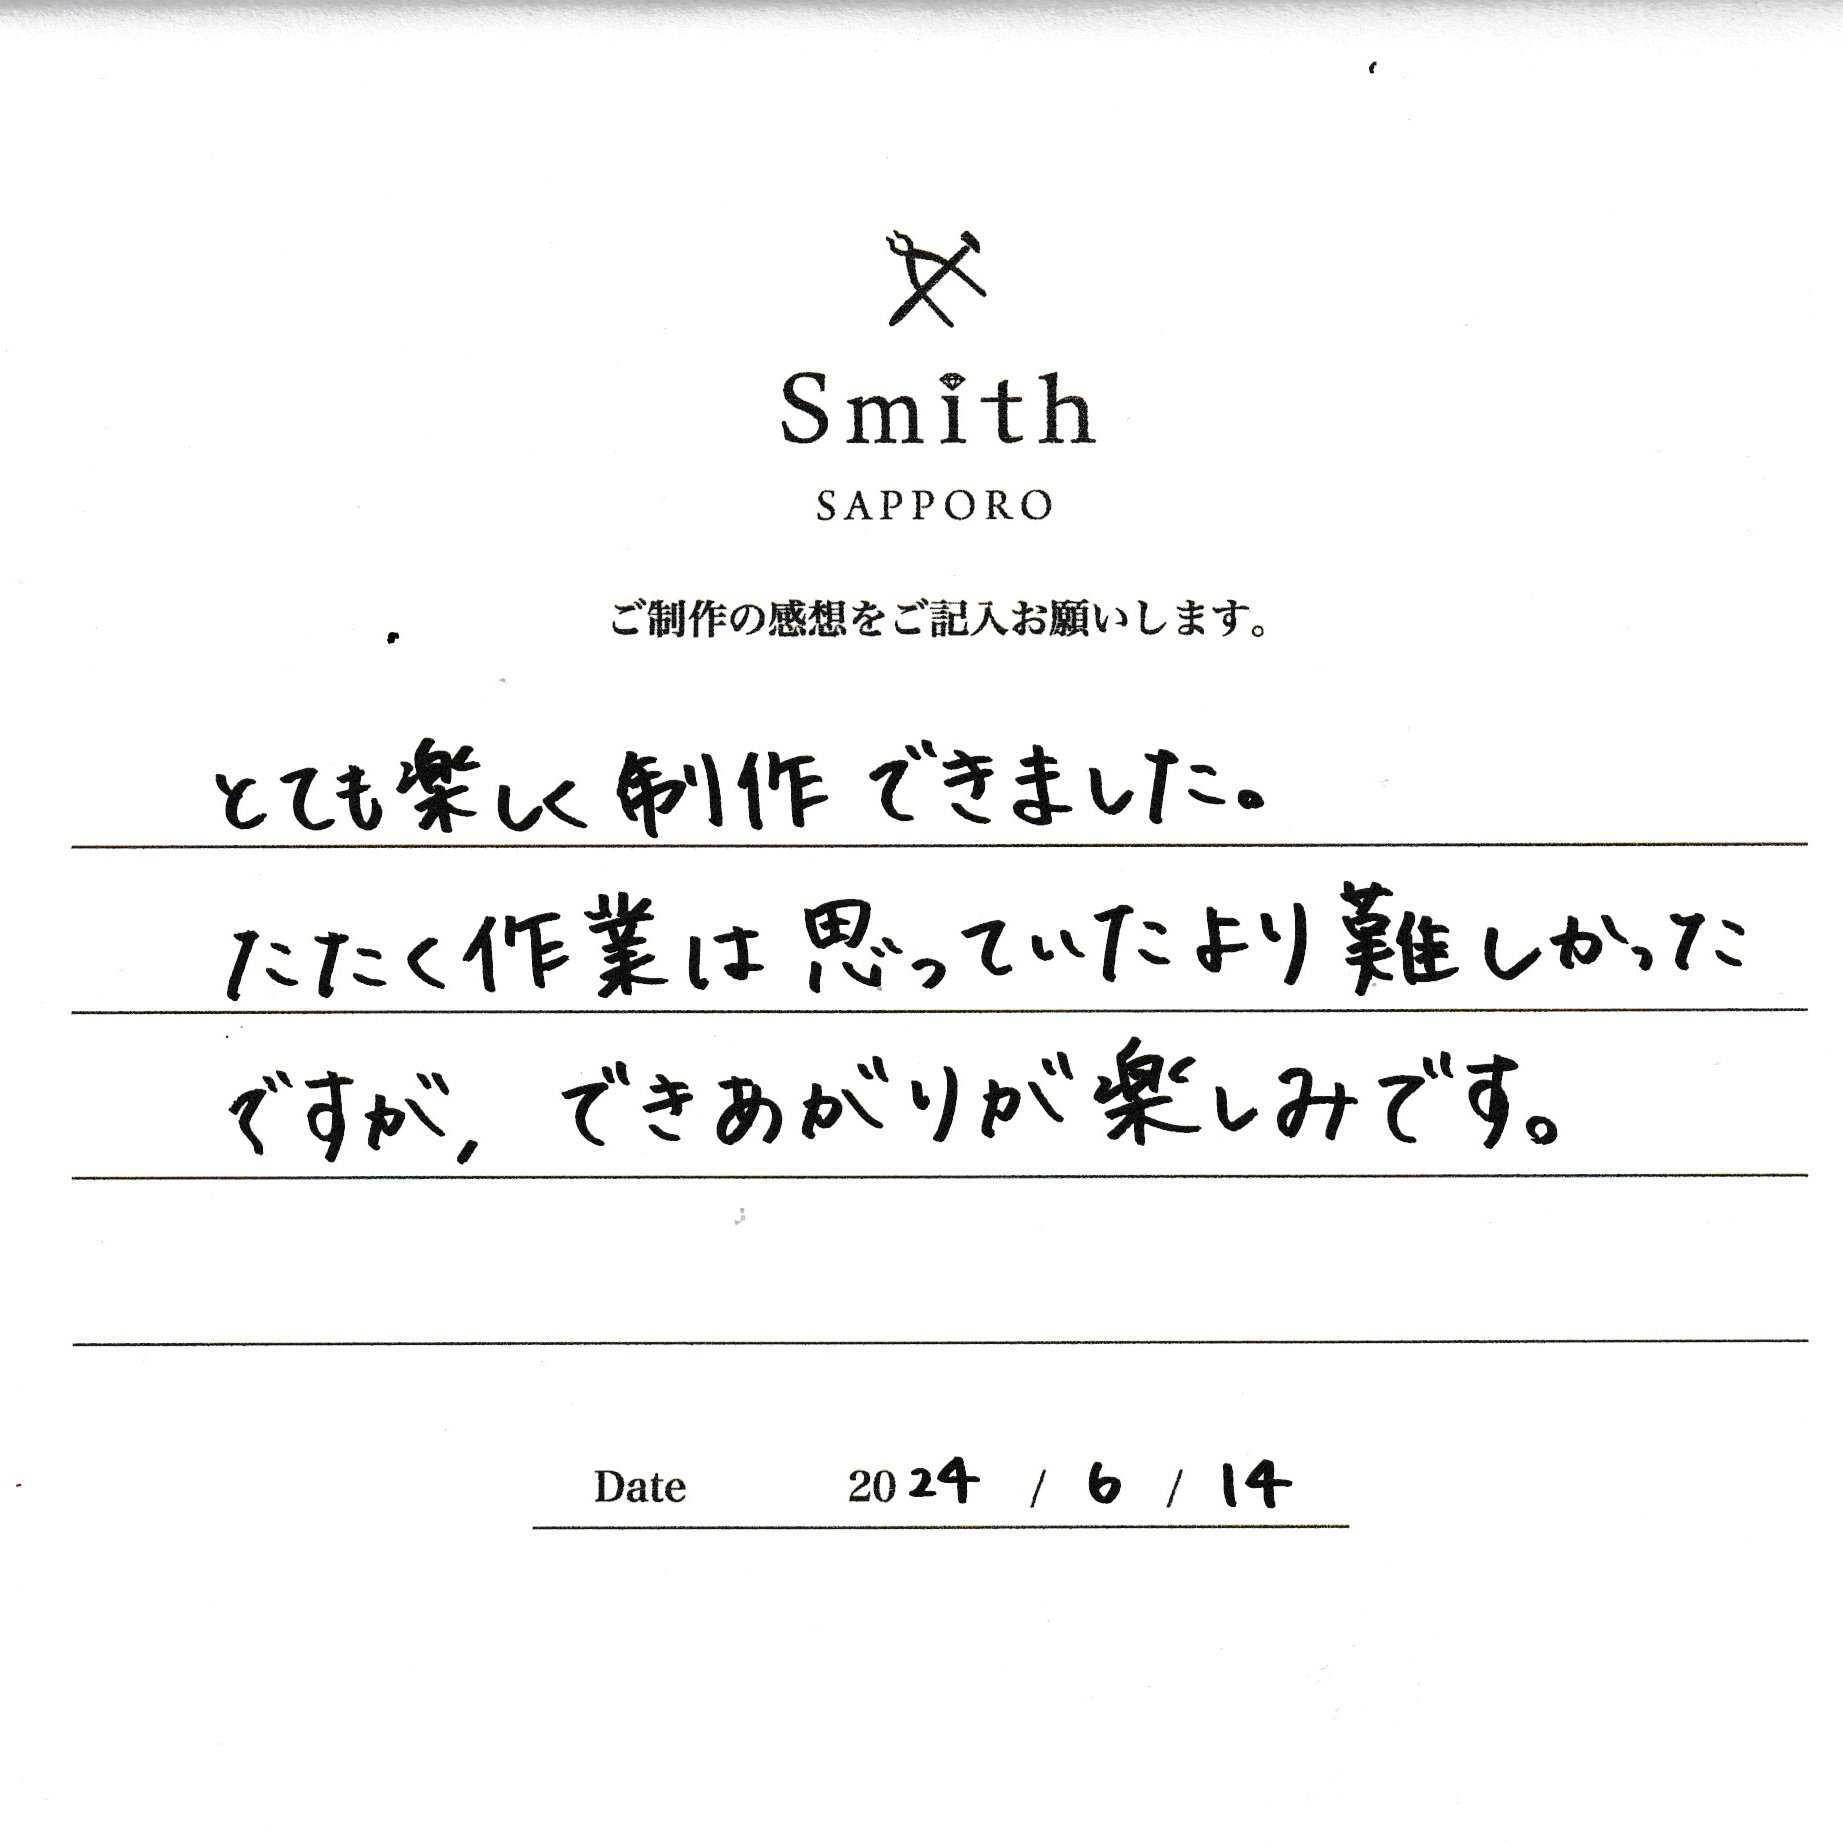 Smith
SAPPORO
ご制作の感想をご記入お願いします。
とても楽しく制作できました。
たたく作業は思っていたより難しかった
ですが、できあがりが楽しみです。
Date 2024 / 6 / 14